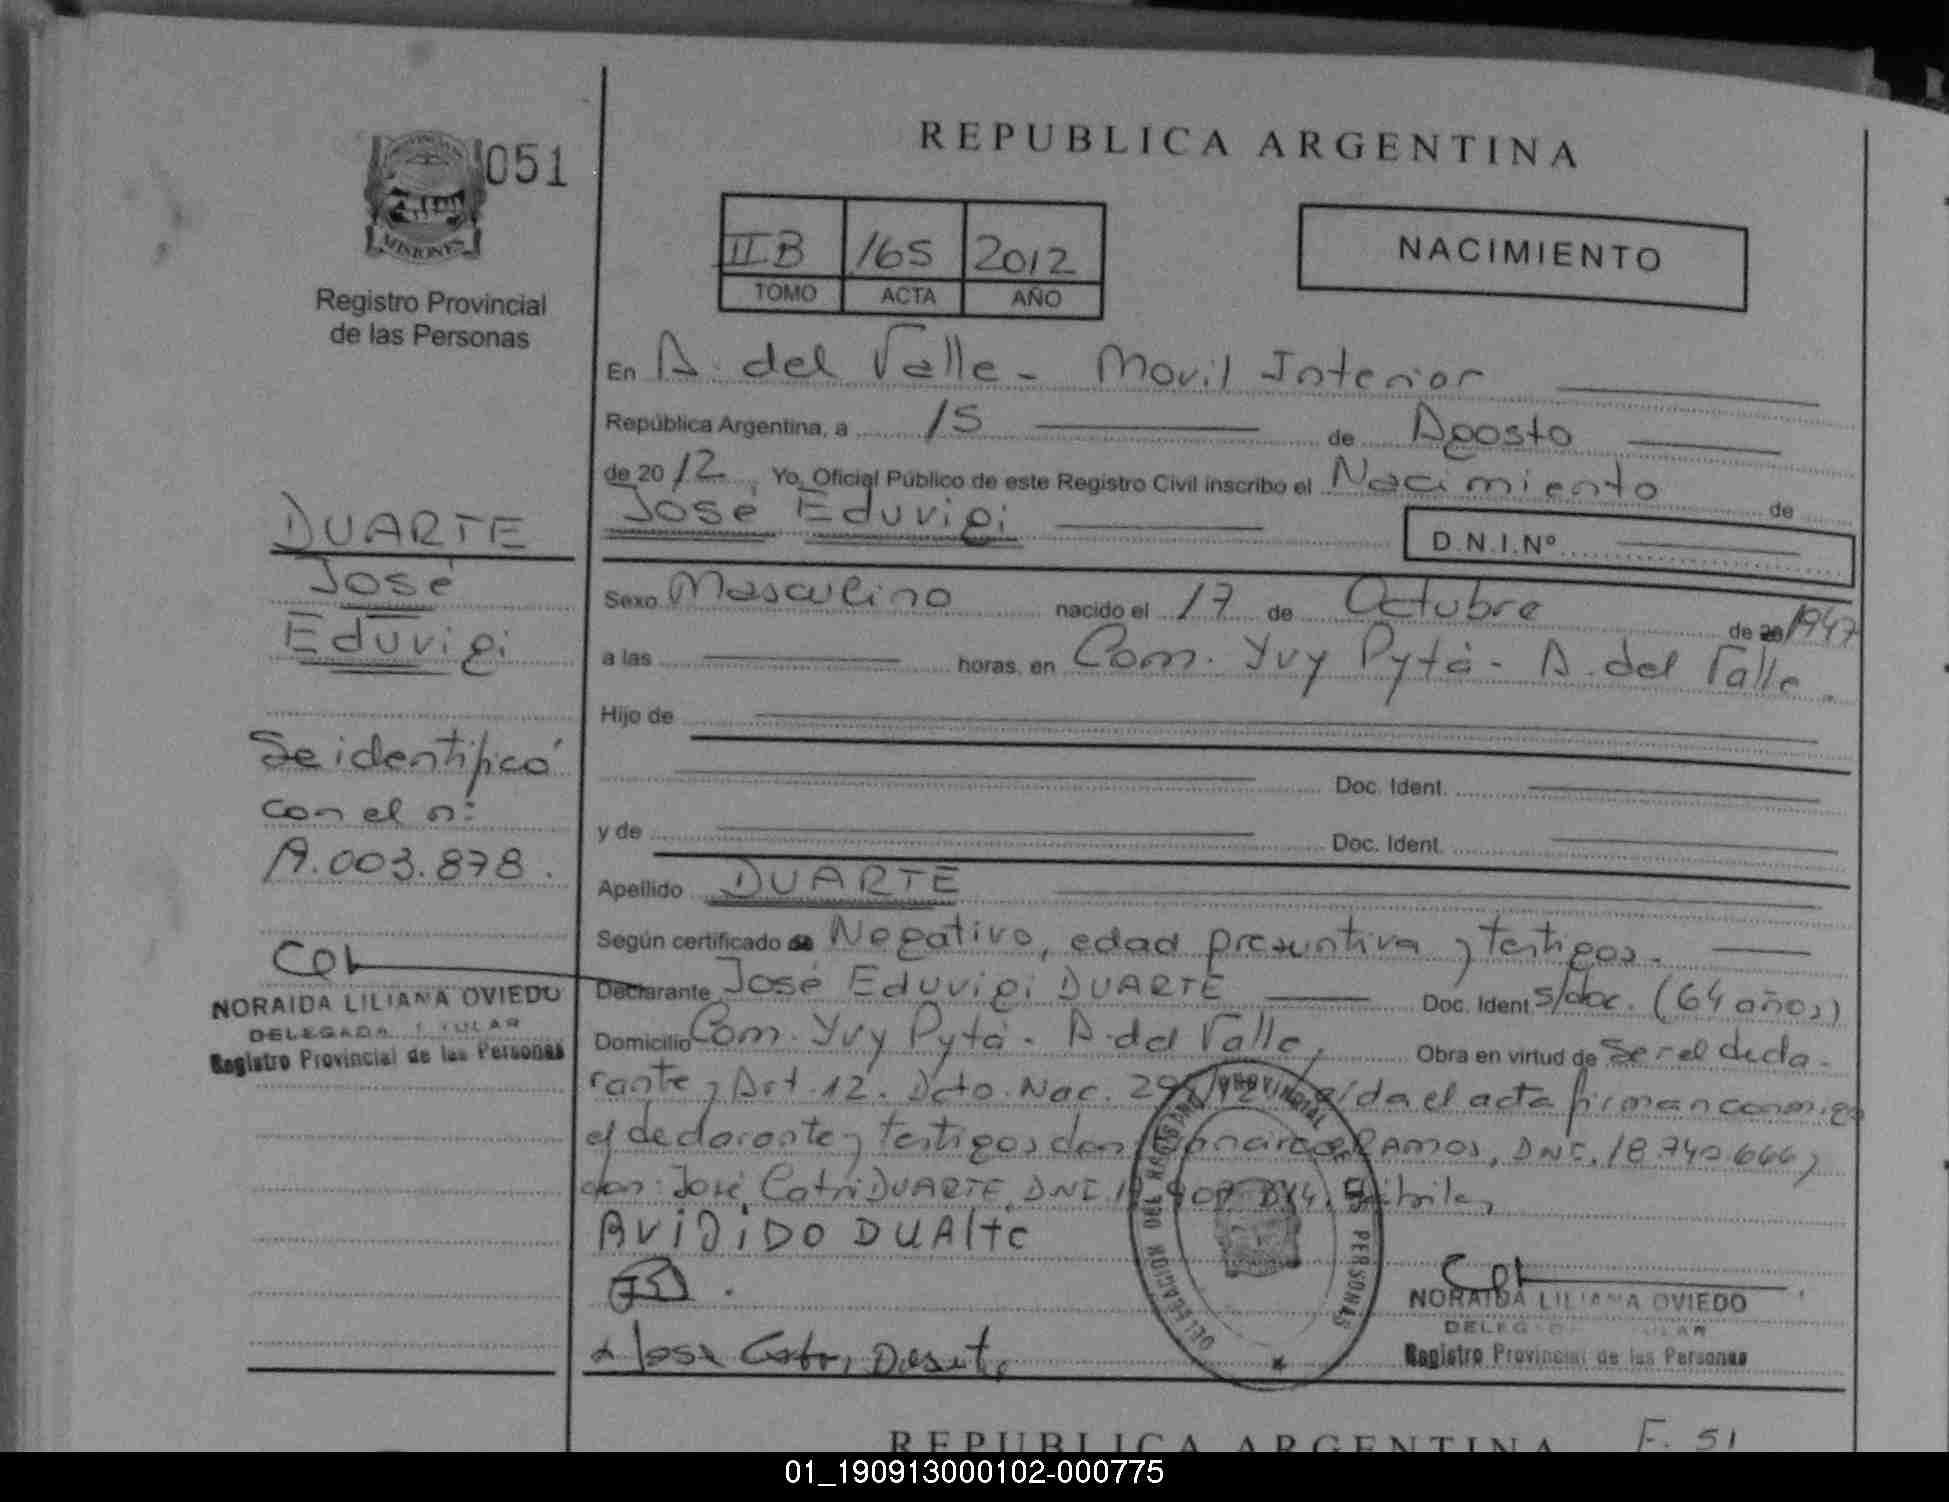 051
MISIONES
Registro Provincial
de las Personas
REPUBLICA ARGENTINA
II B 165 2012
TOMO ACTA AÑO
NACIMIENTO
En A. del Valle - Movil Interior
República Argentina, a 15 de Agosto
de 2012 Yo, Oficial Público de este Registro Civil inscribo el Nacimiento de
José Eduvigi
D.N.I.Nº
Sexo Masculino nacido el 17 de Octubre de 20 1947
a las horas, en Com. Yvy Pytá - A. del Valle.
Hijo de
Doc. Ident.
y de Doc. Ident.
Apellido DUARTE
Según certificado de Negativo, edad presuntiva y testigos.
Declarante José Eduvigi DUARTE Doc. Ident. s/doc. (64 años)
Domicilio Com. Yvy Pytá - A. del Valle, Obra en virtud de Ser el decla-
rante y Art. 12. Dcto. Nac. leída el acta firman conmigo
el declarante y testigos don RAMOS, DNI. 18.740.666 y
don: José Catri DUARTE, DNI.
DUARTE
José
Eduvigi
Se identificó
con el nº:
19.003.878.
NORAIDA LILIANA OVIEDO
DELEGADA TITULAR
Registro Provincial de las Personas
AVIJIDO DUAltE
Jose Catri Duarte
DELEGACIÓN DEL REGISTRO PROVINCIAL DE LAS PERSONAS
NORAIDA LILIANA OVIEDO
DELEGADA TITULAR
Registro Provincial de las Personas
REPUBLICA ARGENTINA F. 51
01_190913000102-000775